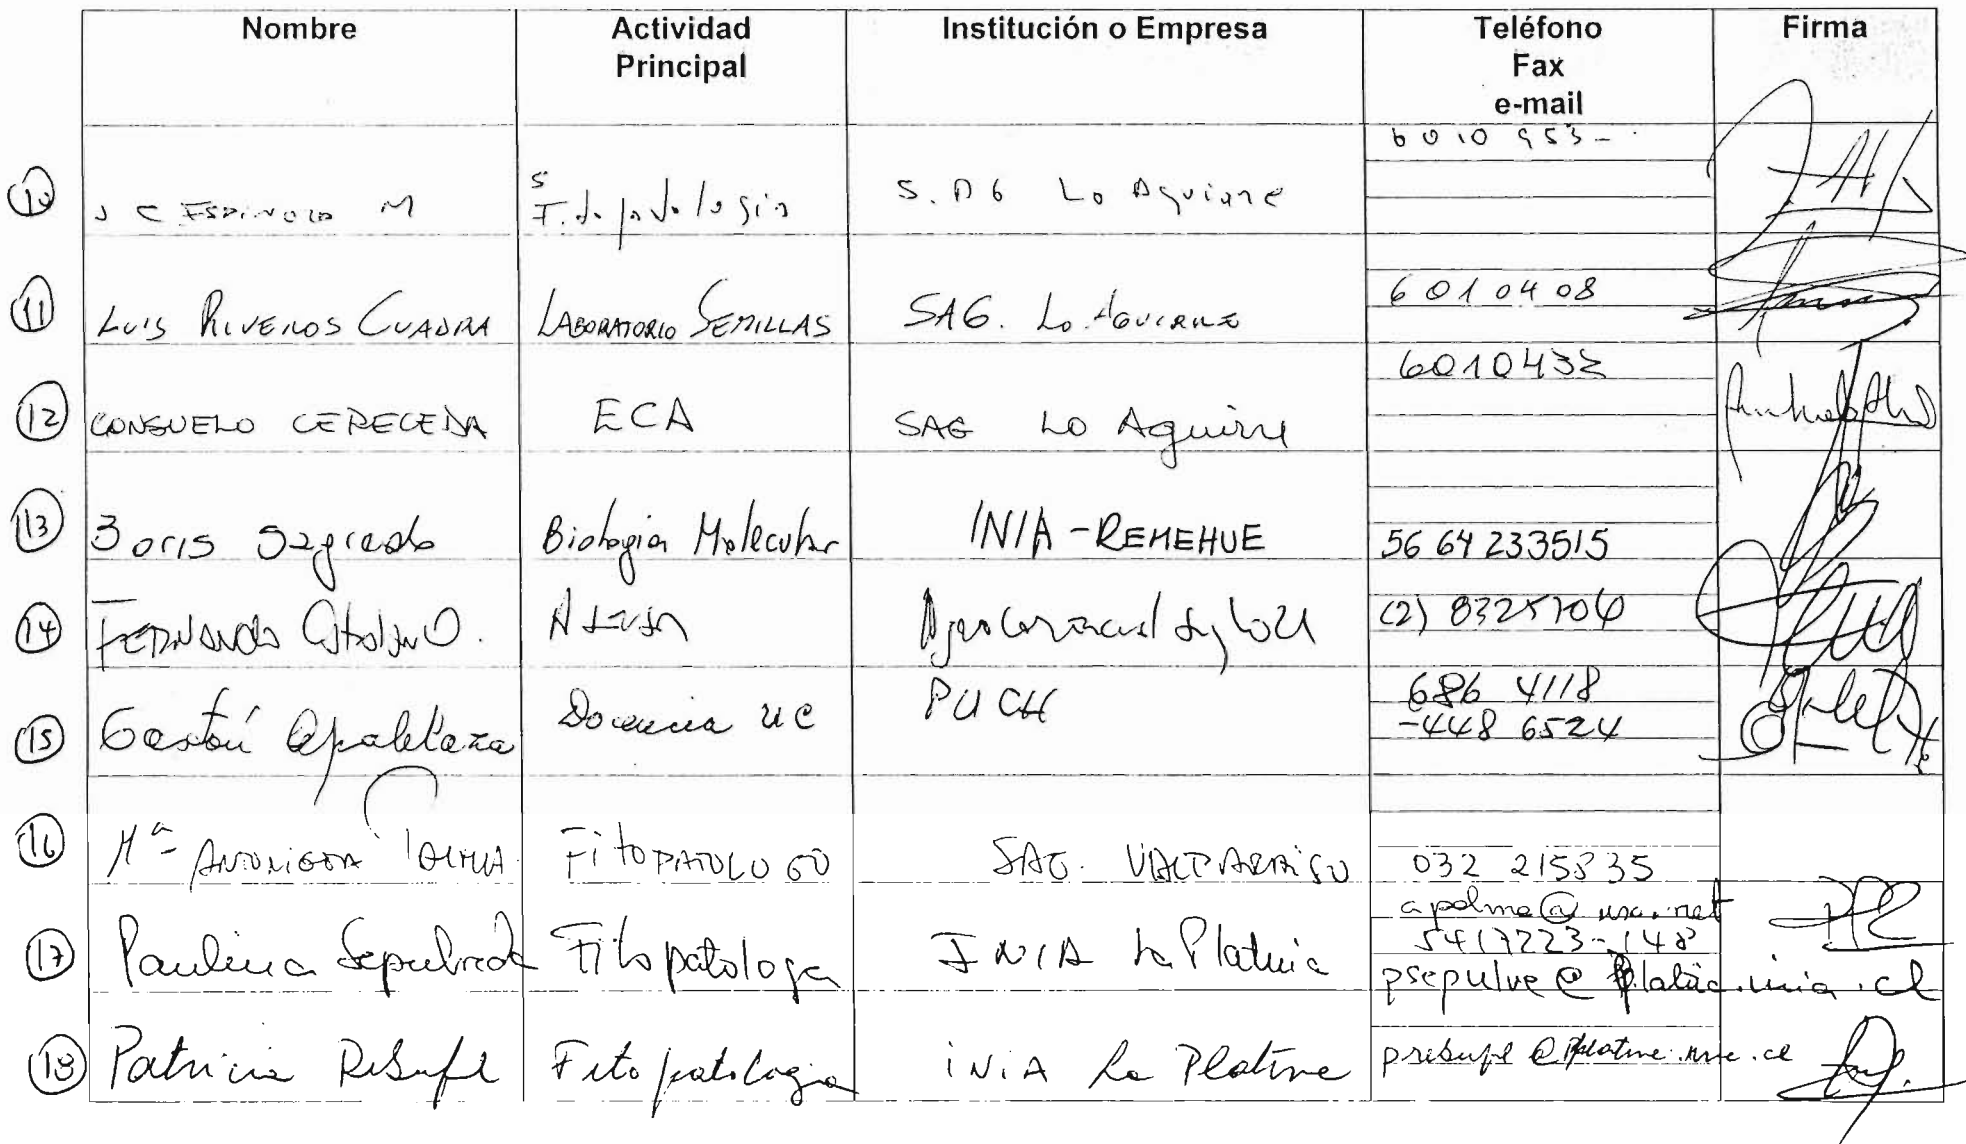 Nombre Actividad Principal Institución o Empresa Teléfono Fax e-mail Firma
10 J C ESPINOZA M Fitopatologia S.A6 Lo Aguirre 6010953-
11 LUIS RIVEROS CUADRA LABORATORIO SEMILLAS SAG. Lo AGUIRRE 6010408
12 CONSUELO CERECEDA ECA SAG LO Aguirre 6010432
13 Boris Sagredo Biologia Molecular INIA-REMEHUE 56 64 233515
14 FERNANDO (2) 8325704
15 Gastón Apablaza Docencia UC PUCH 686 4118
-448 6524
16 Mª ANTONIETA PALMA FITOPATOLOGO SAG. VALPARAISO 032 215835
apalma@usa.net
17 Paulina Sepulveda Fitopatologa INIA La Platina 5417223-148
psepulve@platina.inia.cl
18 Patricia Rebufel Fitopatologia INIA La Platina prebufel@platina.inia.cl